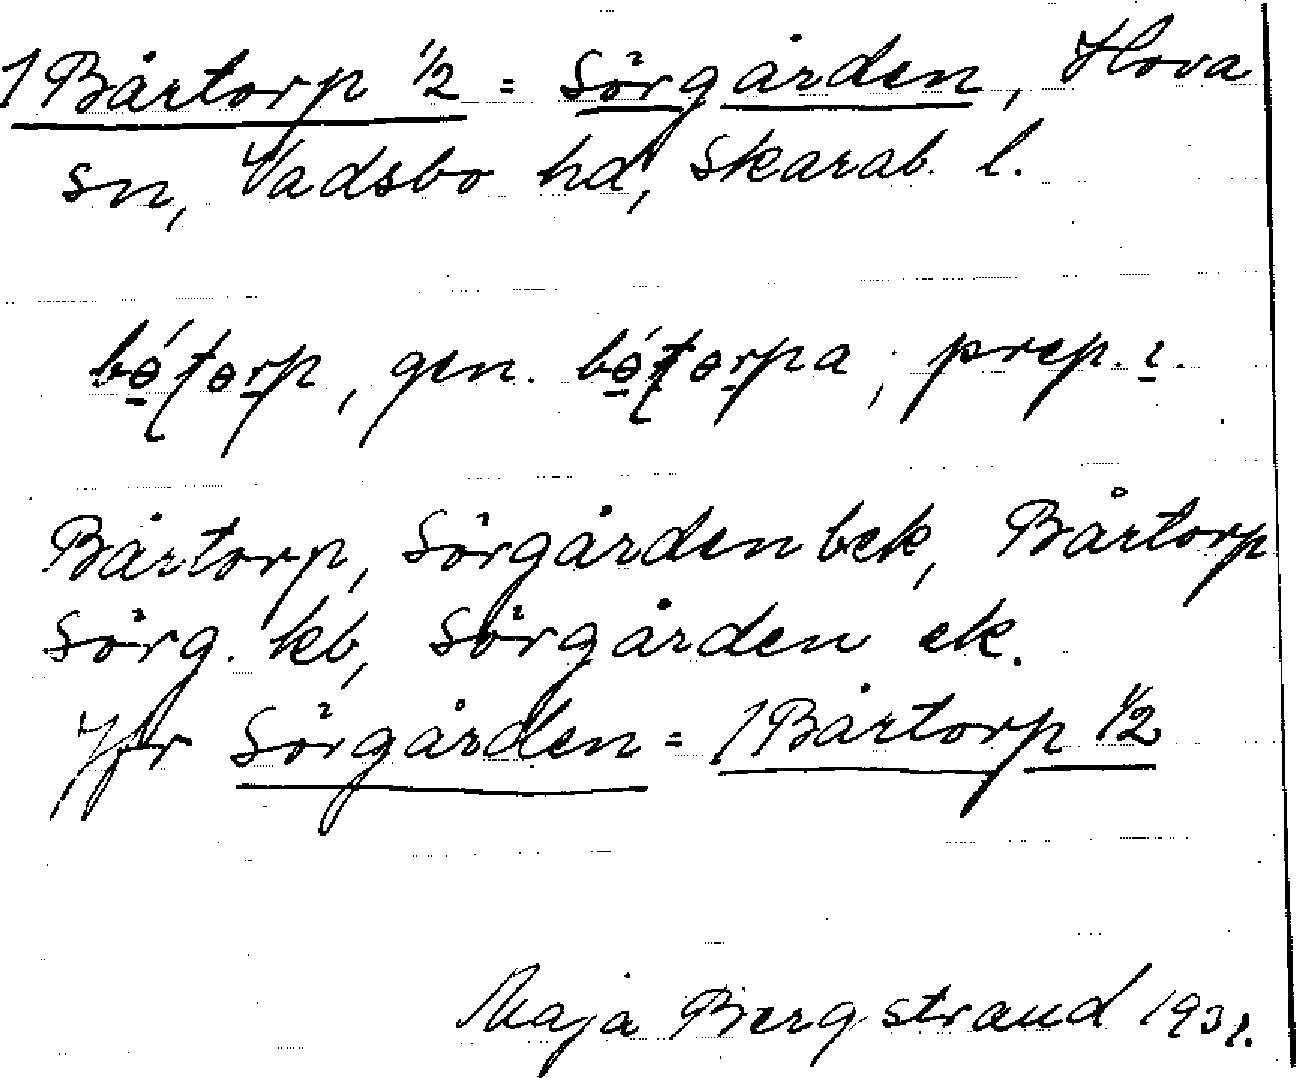 1 Bårtorp 1/2 = Sörgården, Hova
sn, Vadsbo hd, Skarab. l.
gen. prep. ı.
Bårtorp, Sörgården bek, Bårtorp
Sörg. kb, Sörgården ek.
Jfr Sörgården = 1 Bårtorp 1/2
Maja Bergstrand 1931.